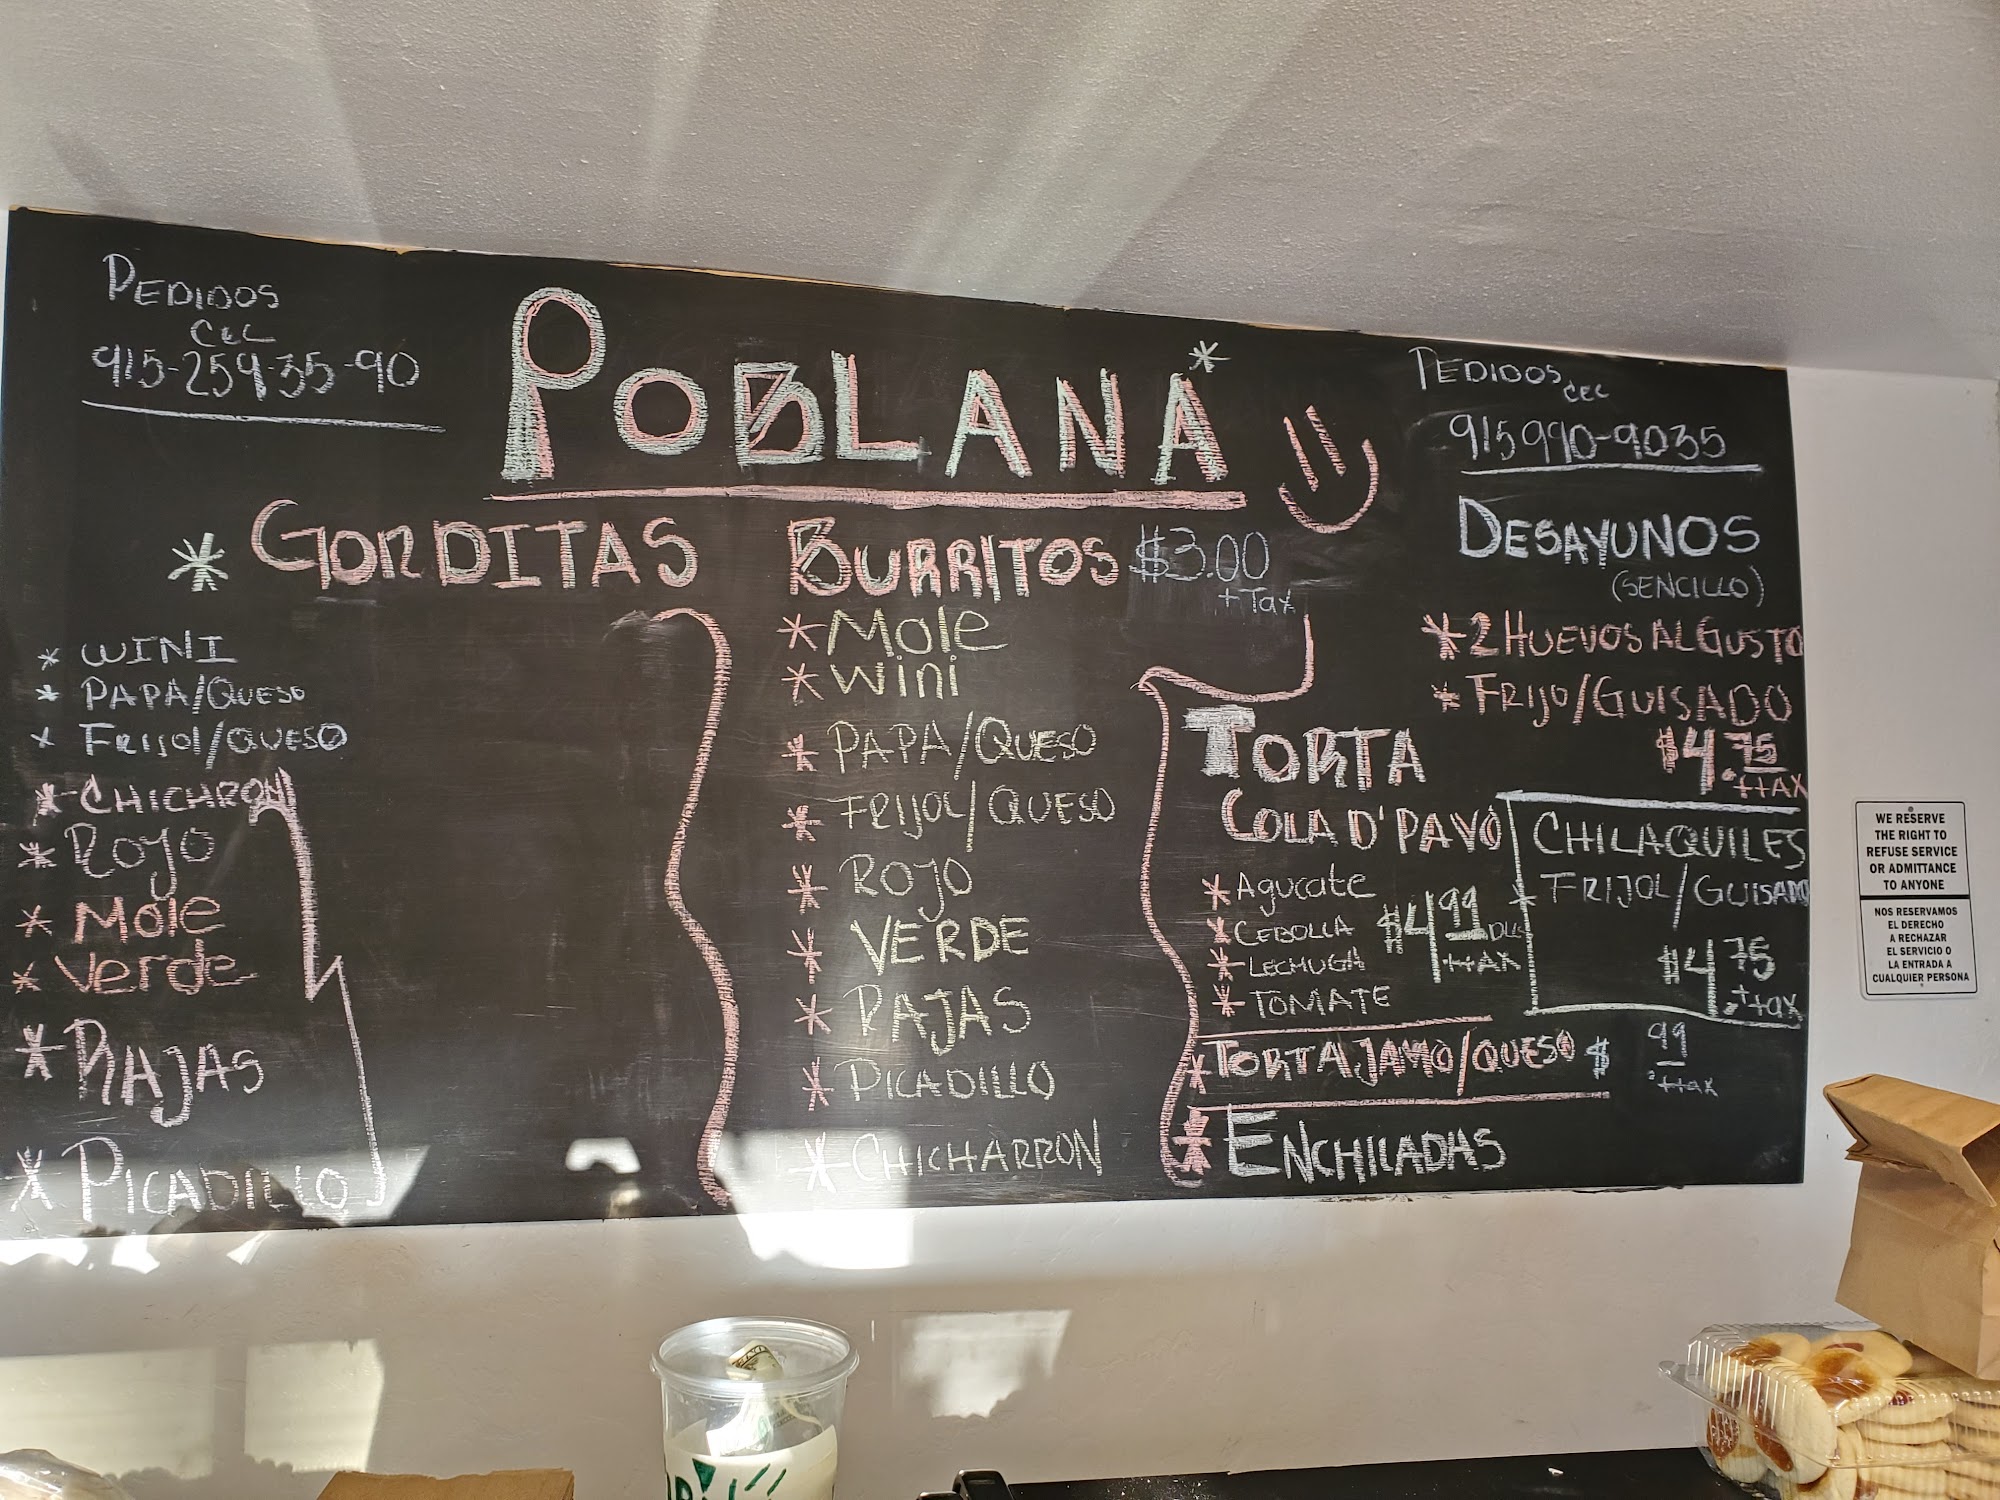 PEDIDOS
CEL
915-259-35-90
POBLANA
PEDIDOS CEL
915 990-9035
* GORDITAS
* WINI
* PAPA/QUESO
* FRIJOL/QUESO
* CHICHRON
* ROJO
* Mole
* Verde
* RAJAS
* PICADILLO
BURRITOS $3.00
+ Tax
* Mole
* Wini
* PAPA/QUESO
* FRIJOL/QUESO
* ROJO
* VERDE
* RAJAS
* PICADILLO
* CHICHARRON
TORTA
COLA D'PAVO
* Agucate
* CEBOLLA
* LECHUGA
* TOMATE
$4.99 DLLS
+tAX
* TORTA JAMO/QUESO $ .99
+tax
* ENCHILADAS
DESAYUNOS
(SENCILLO)
* 2 HUEVOS AL GUSTO
* FRIJO/GUISADO
$4.75
+tAX
CHILAQUILES
* FRIJOL/GUISADO
$4.75
+tax
WE RESERVE
THE RIGHT TO
REFUSE SERVICE
OR ADMITTANCE
TO ANYONE
NOS RESERVAMOS
EL DERECHO
A RECHAZAR
EL SERVICIO O
LA ENTRADA A
CUALQUIER PERSONA